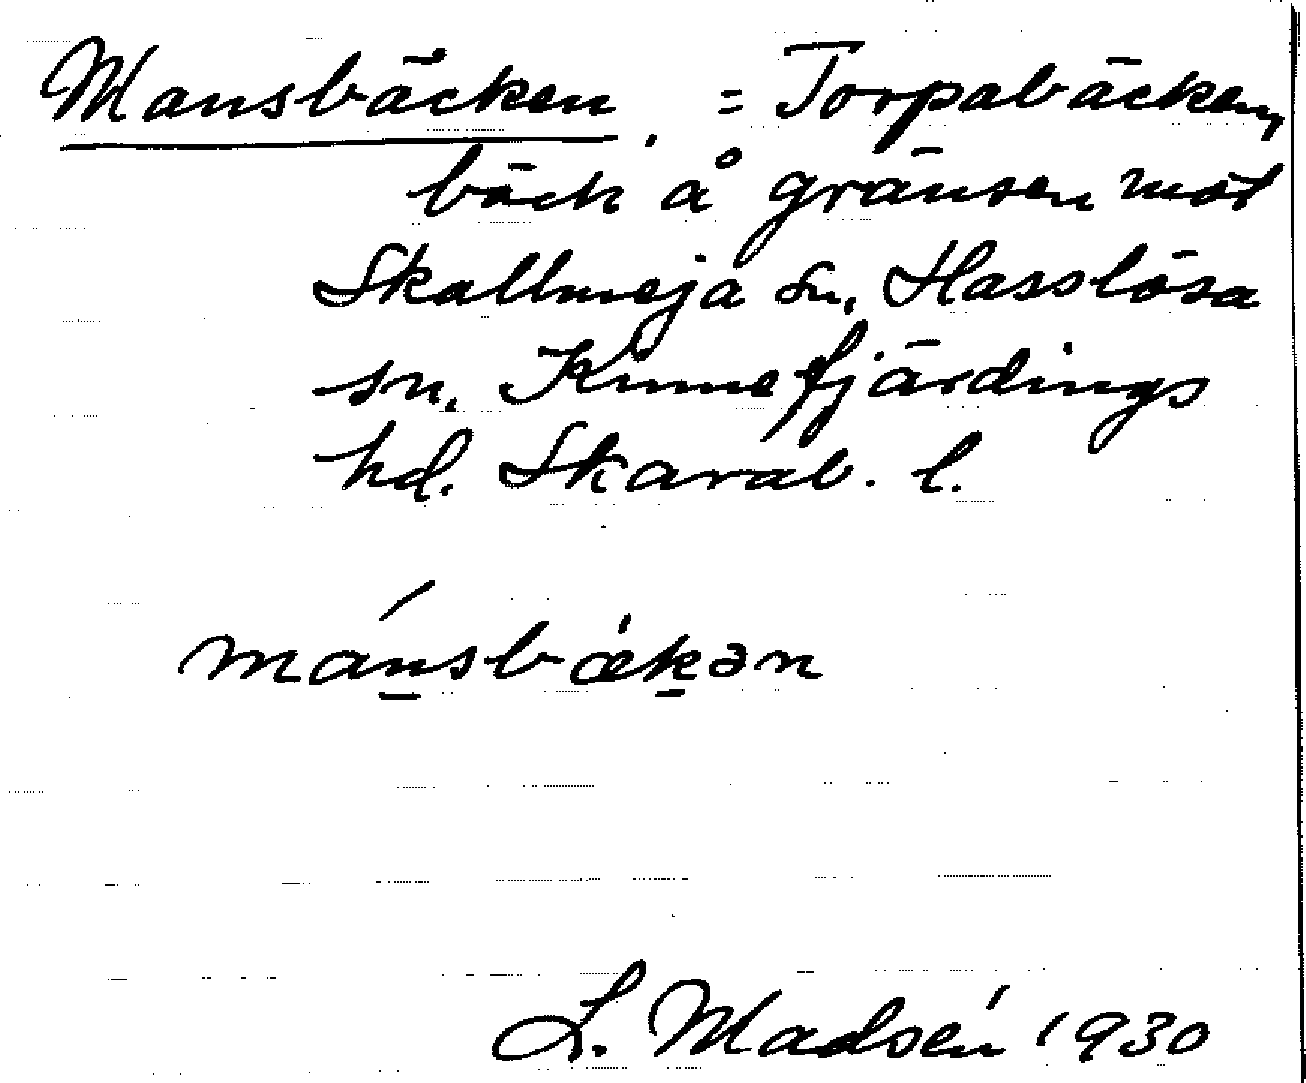 Mansbäcken. = Torpabäcken,
bäck å gränsen mot
Skallmeja sn, Hasslösa
sn. Kinnefjärdings
hd. Skarab. l.
mánsbǽkən
L. Madsén 1930